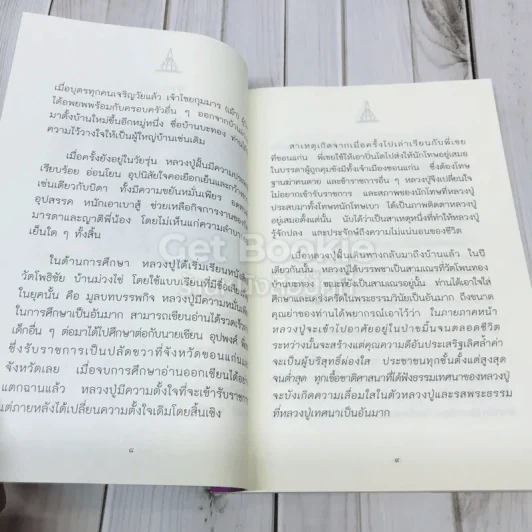 เมื่อบุตรทุกคนเจริญวัยแล้ว เจ้าไชยกุมมาร (เม้า)
ได้อพยพพร้อมกับครอบครัวอื่น ๆ ออกจากบ้าน
มาตั้งบ้านใหม่ขึ้นอีกหมู่หนึ่ง ชื่อบ้านบะทอง
ความไว้วางใจให้เป็นผู้ใหญ่บ้านเช่นเดิม
เมื่อครั้งยังอยู่ในวัยรุ่น หลวงปู่ฝั้นมีความประ
เรียบร้อย อ่อนโยน อุปนิสัยใจคอเยือกเย็นและกว้าง
เช่นเดียวกับบิดา ทั้งมีความขยันหมั่นเพียร อดทน
อุปสรรค หนักเอาเบาสู้ ช่วยเหลือกิจการงานของ
มารดาและญาติพี่น้อง โดยไม่เห็นแก่ความลำบาก
เย็นใด ๆ ทั้งสิ้น
ในด้านการศึกษา หลวงปู่ได้เริ่มเรียนหนังสือ
วัดโพธิชัย บ้านม่วงไข่ โดยใช้แบบเรียนที่มีชื่อเสียง
ในยุคนั้น คือ มูลบทบรรพกิจ หลวงปู่มีความหมั่นเพียร
ในการศึกษาเป็นอันมาก สามารถเขียนอ่านได้รวดเร็ว
เด็กอื่น ๆ ต่อมาได้ไปศึกษาต่อกับนายเขียน อุปพงศ์
ซึ่งรับราชการเป็นปลัดขวาที่จังหวัดขอนแก่น
จังหวัดเลย เมื่อจบการศึกษาอ่านออกเขียนได้อย่าง
แตกฉานแล้ว หลวงปู่มีความตั้งใจที่จะเข้ารับราชการ
แต่ภายหลังได้เปลี่ยนความตั้งใจเดิมโดยสิ้นเชิง
๘
สาเหตุเกิดจากเมื่อครั้งไปเล่าเรียนกับพี่เขย
ที่ขอนแก่น พี่เขยใช้ให้เอาปิ่นโตไปส่งให้นักโทษอยู่เสมอ
ในบรรดาผู้ถูกคุมขังมีทั้งเจ้าเมืองขอนแก่น ซึ่งต้องโทษ
ฐานฆ่าคนตาย และข้าราชการอื่น ๆ หลวงปู่จึงเปลี่ยนใจ
ไม่อยากเข้ารับราชการ และสภาพของนักโทษที่หลวงปู่
ประสบมาทั้งโทษหนักโทษเบา ได้เป็นภาพติดตาหลวงปู่
อยู่เสมอตั้งแต่นั้น นับได้ว่าเป็นสาเหตุหนึ่งที่ทำให้หลวงปู่
รู้จักปลง และประจักษ์ถึงความไม่แน่นอนของชีวิต
เมื่อหลวงปู่ฝั้นเดินทางกลับมาถึงบ้านแล้ว ในปี
เดียวกันนั้น หลวงปู่ได้บรรพชาเป็นสามเณรที่วัดโพนทอง
บ้านบะทอง ระหว่างที่เป็นสามเณรอยู่นั้น ท่านได้เอาใจใส่
ศึกษาและเคร่งครัดในพระธรรมวินัยเป็นอันมาก ถึงขนาด
คุณย่าของท่านได้พยากรณ์เอาไว้ว่า ในภายภาคหน้า
หลวงปู่จะเข้าไปอาศัยอยู่ในป่าขมิ้นจนตลอดชีวิต
ระหว่างนั้นจะสร้างแต่คุณความดีอันประเสริฐเลิศล้ำค่า
จะเป็นผู้บริสุทธิ์ผ่องใส ประชาชนทุกชั้นตั้งแต่สูงสุด
จนต่ำสุด ทุกเชื้อชาติศาสนาที่ได้ฟังธรรมเทศนาของหลวงปู่
จะบังเกิดความเลื่อมใสในตัวหลวงปู่และรสพระธรรม
ที่หลวงปู่เทศนาเป็นอันมาก
๙
Get Bookie